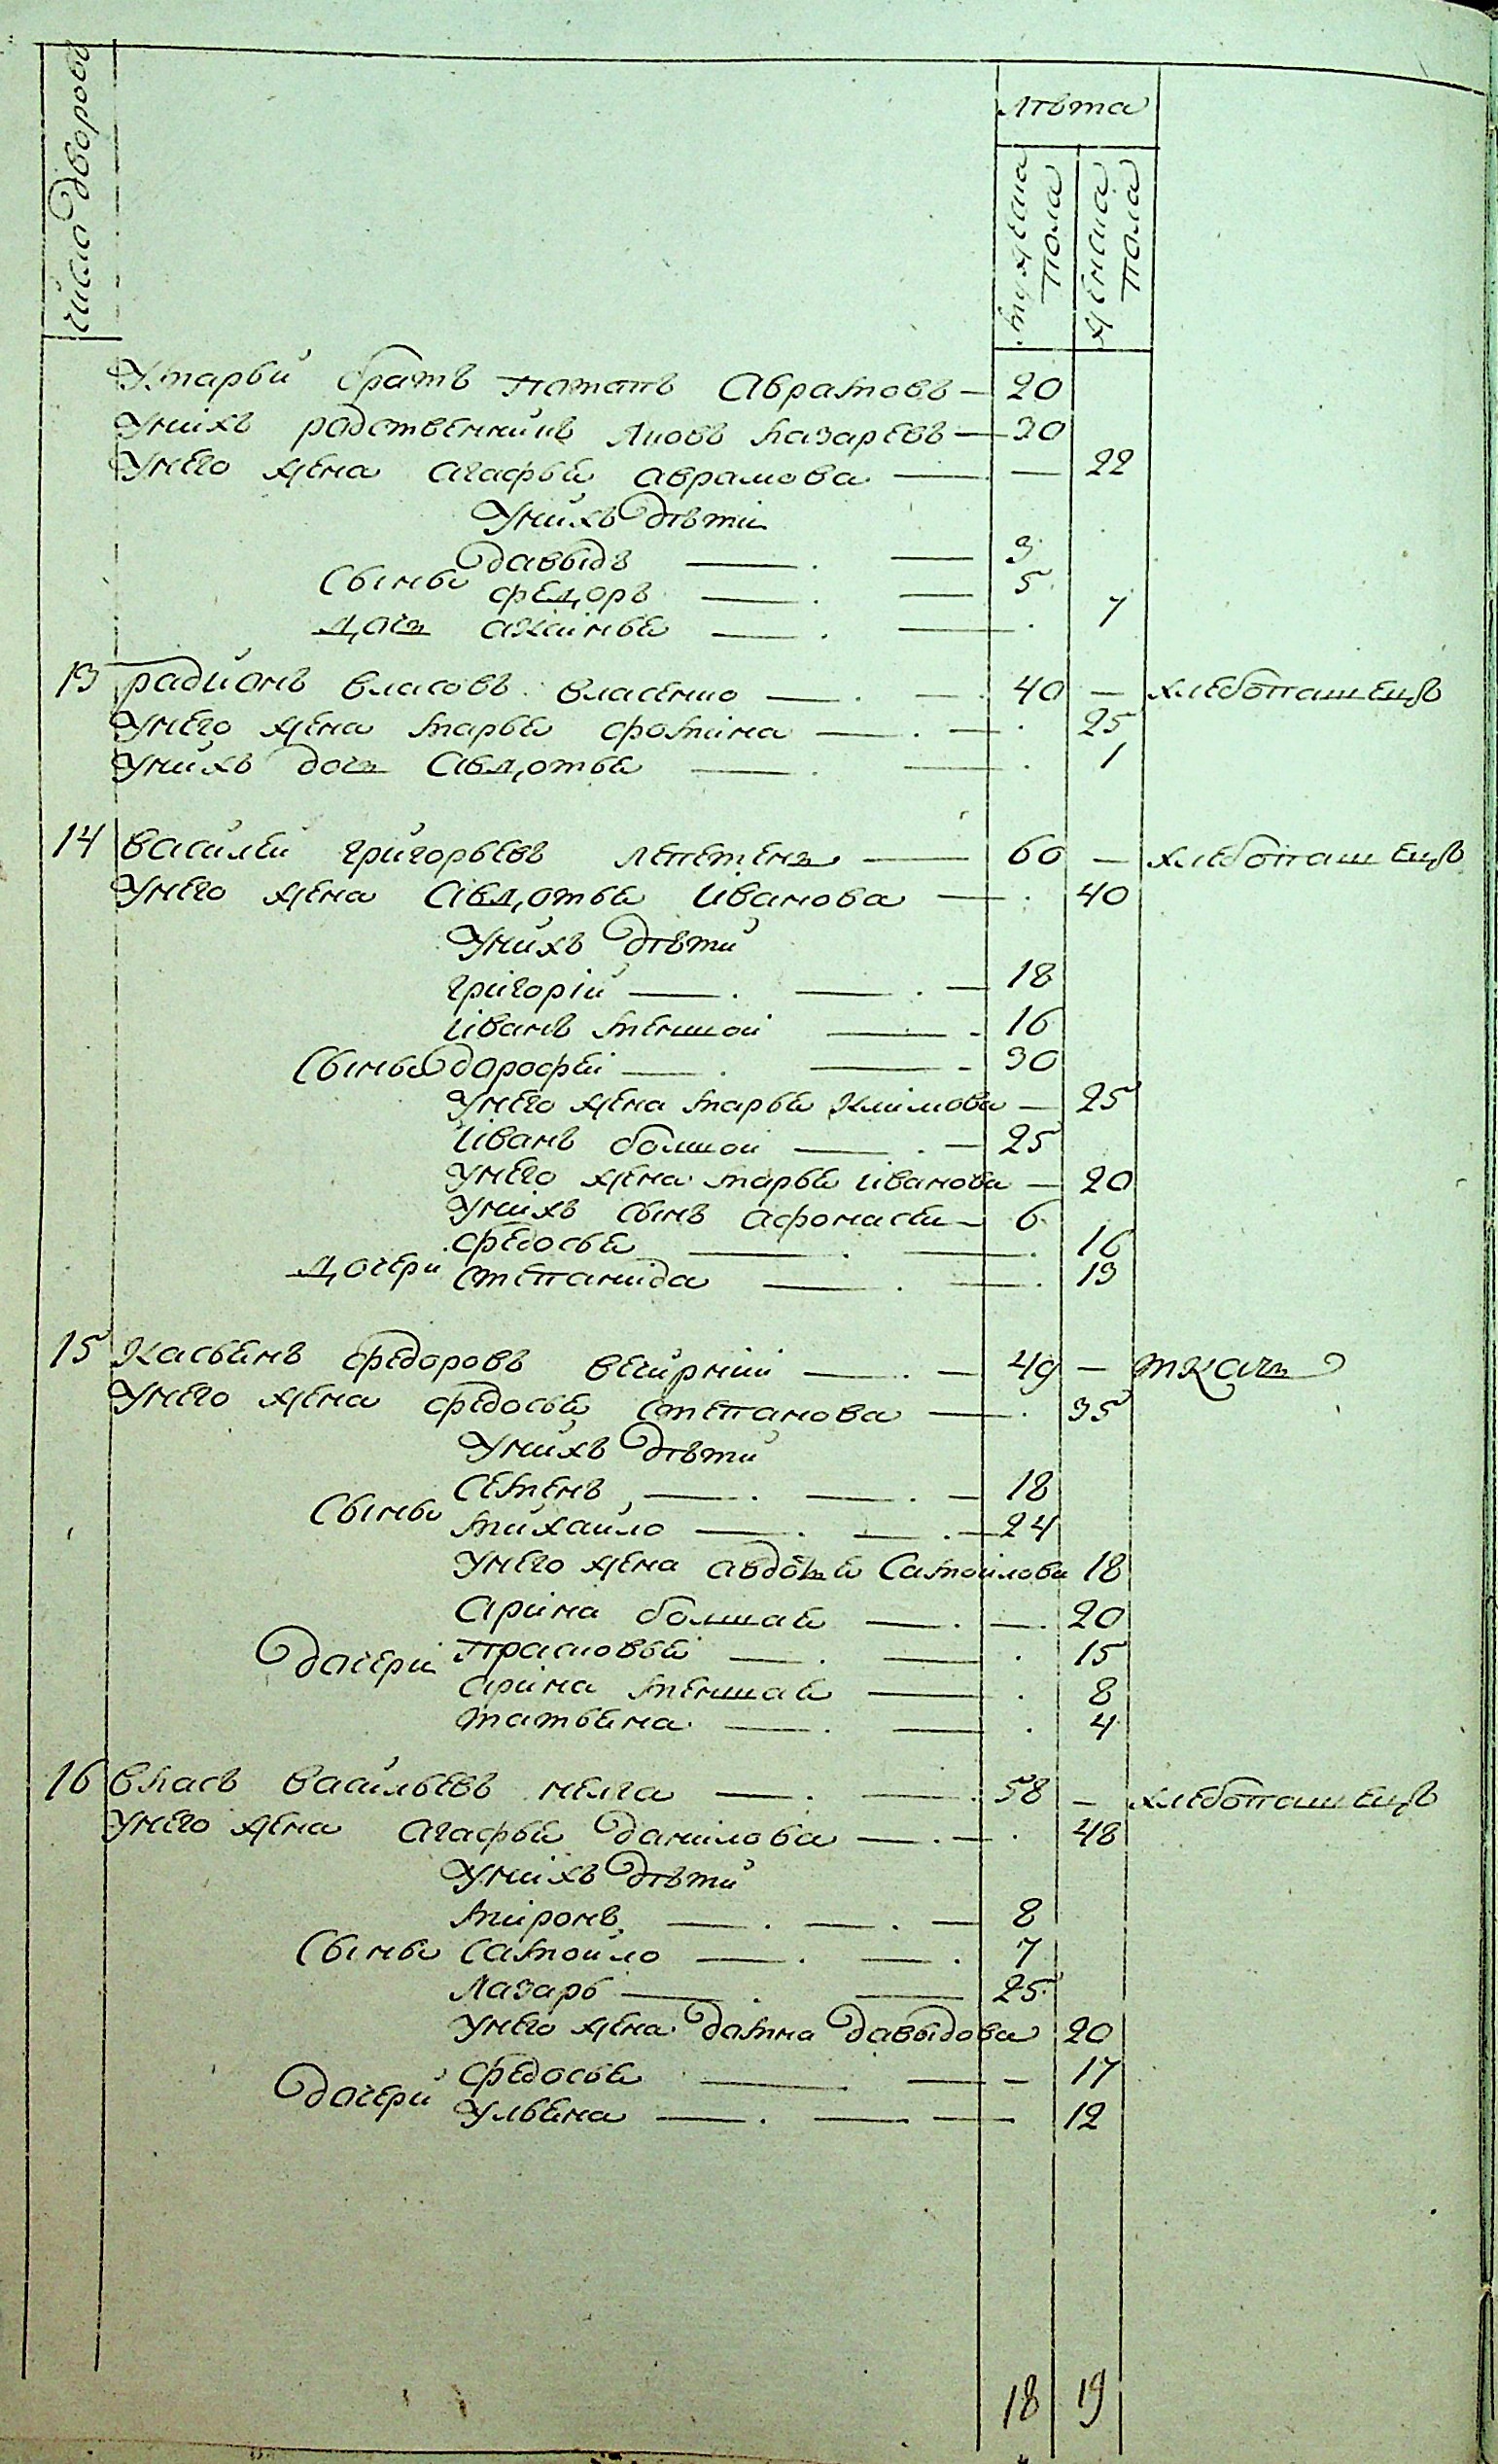 число дворовъ
лѣта
мужеска пола
женска пола
Умарьи братъ потапъ Аврамовъ — 20
Унихъ родственникъ яковъ лазаревъ — 30
Унего жена агафья аврамова — — 22
Унихъ дѣти
давыдъ — — 3
Сынья федоръ — — 5
дочь аксинья — — 7
13 радионъ власовъ власенко — — 40 — хлебопашецъ
Унего жена марья фомина — — 25
Унихъ дочь Авдотья — — 1
14 Василей григорьевъ лепетень — 60 — хлебопашецъ
Унего жена Авдотья Иванова — 40
Унихъ дѣти
григорій — — 18
Иванъ меншой — 16
Сынья дорофей — — 30
Унего жена марья Климова — 25
Иванъ болшой — — 25
Унего жена марья Иванова — 20
Унихъ сынъ афонасей — 6
федосья — — 16
дочери степанида — — 13
15 Касьянъ федоровъ вечирній — — 49 — ткачь
Унего жена федосья степанова — 35
Унихъ дѣти
Семенъ — — 18
Сынья михайло — — 24
Унего жена авдотья Самойлова 18
Арина болшая — — 20
дочери прасковья — — 15
Арина меншая — 8
татьяна — — 4
16 власъ васильевъ — — 58 — хлебопашецъ
Унего жена агафья данилова — — 48
Унихъ дѣти
миронъ — — 8
Сынья самойло — — 7
Лазарь — — 25
Унего жена домна давыдова 20
федосья — — 17
дочери Ульяна — — 12
18 19